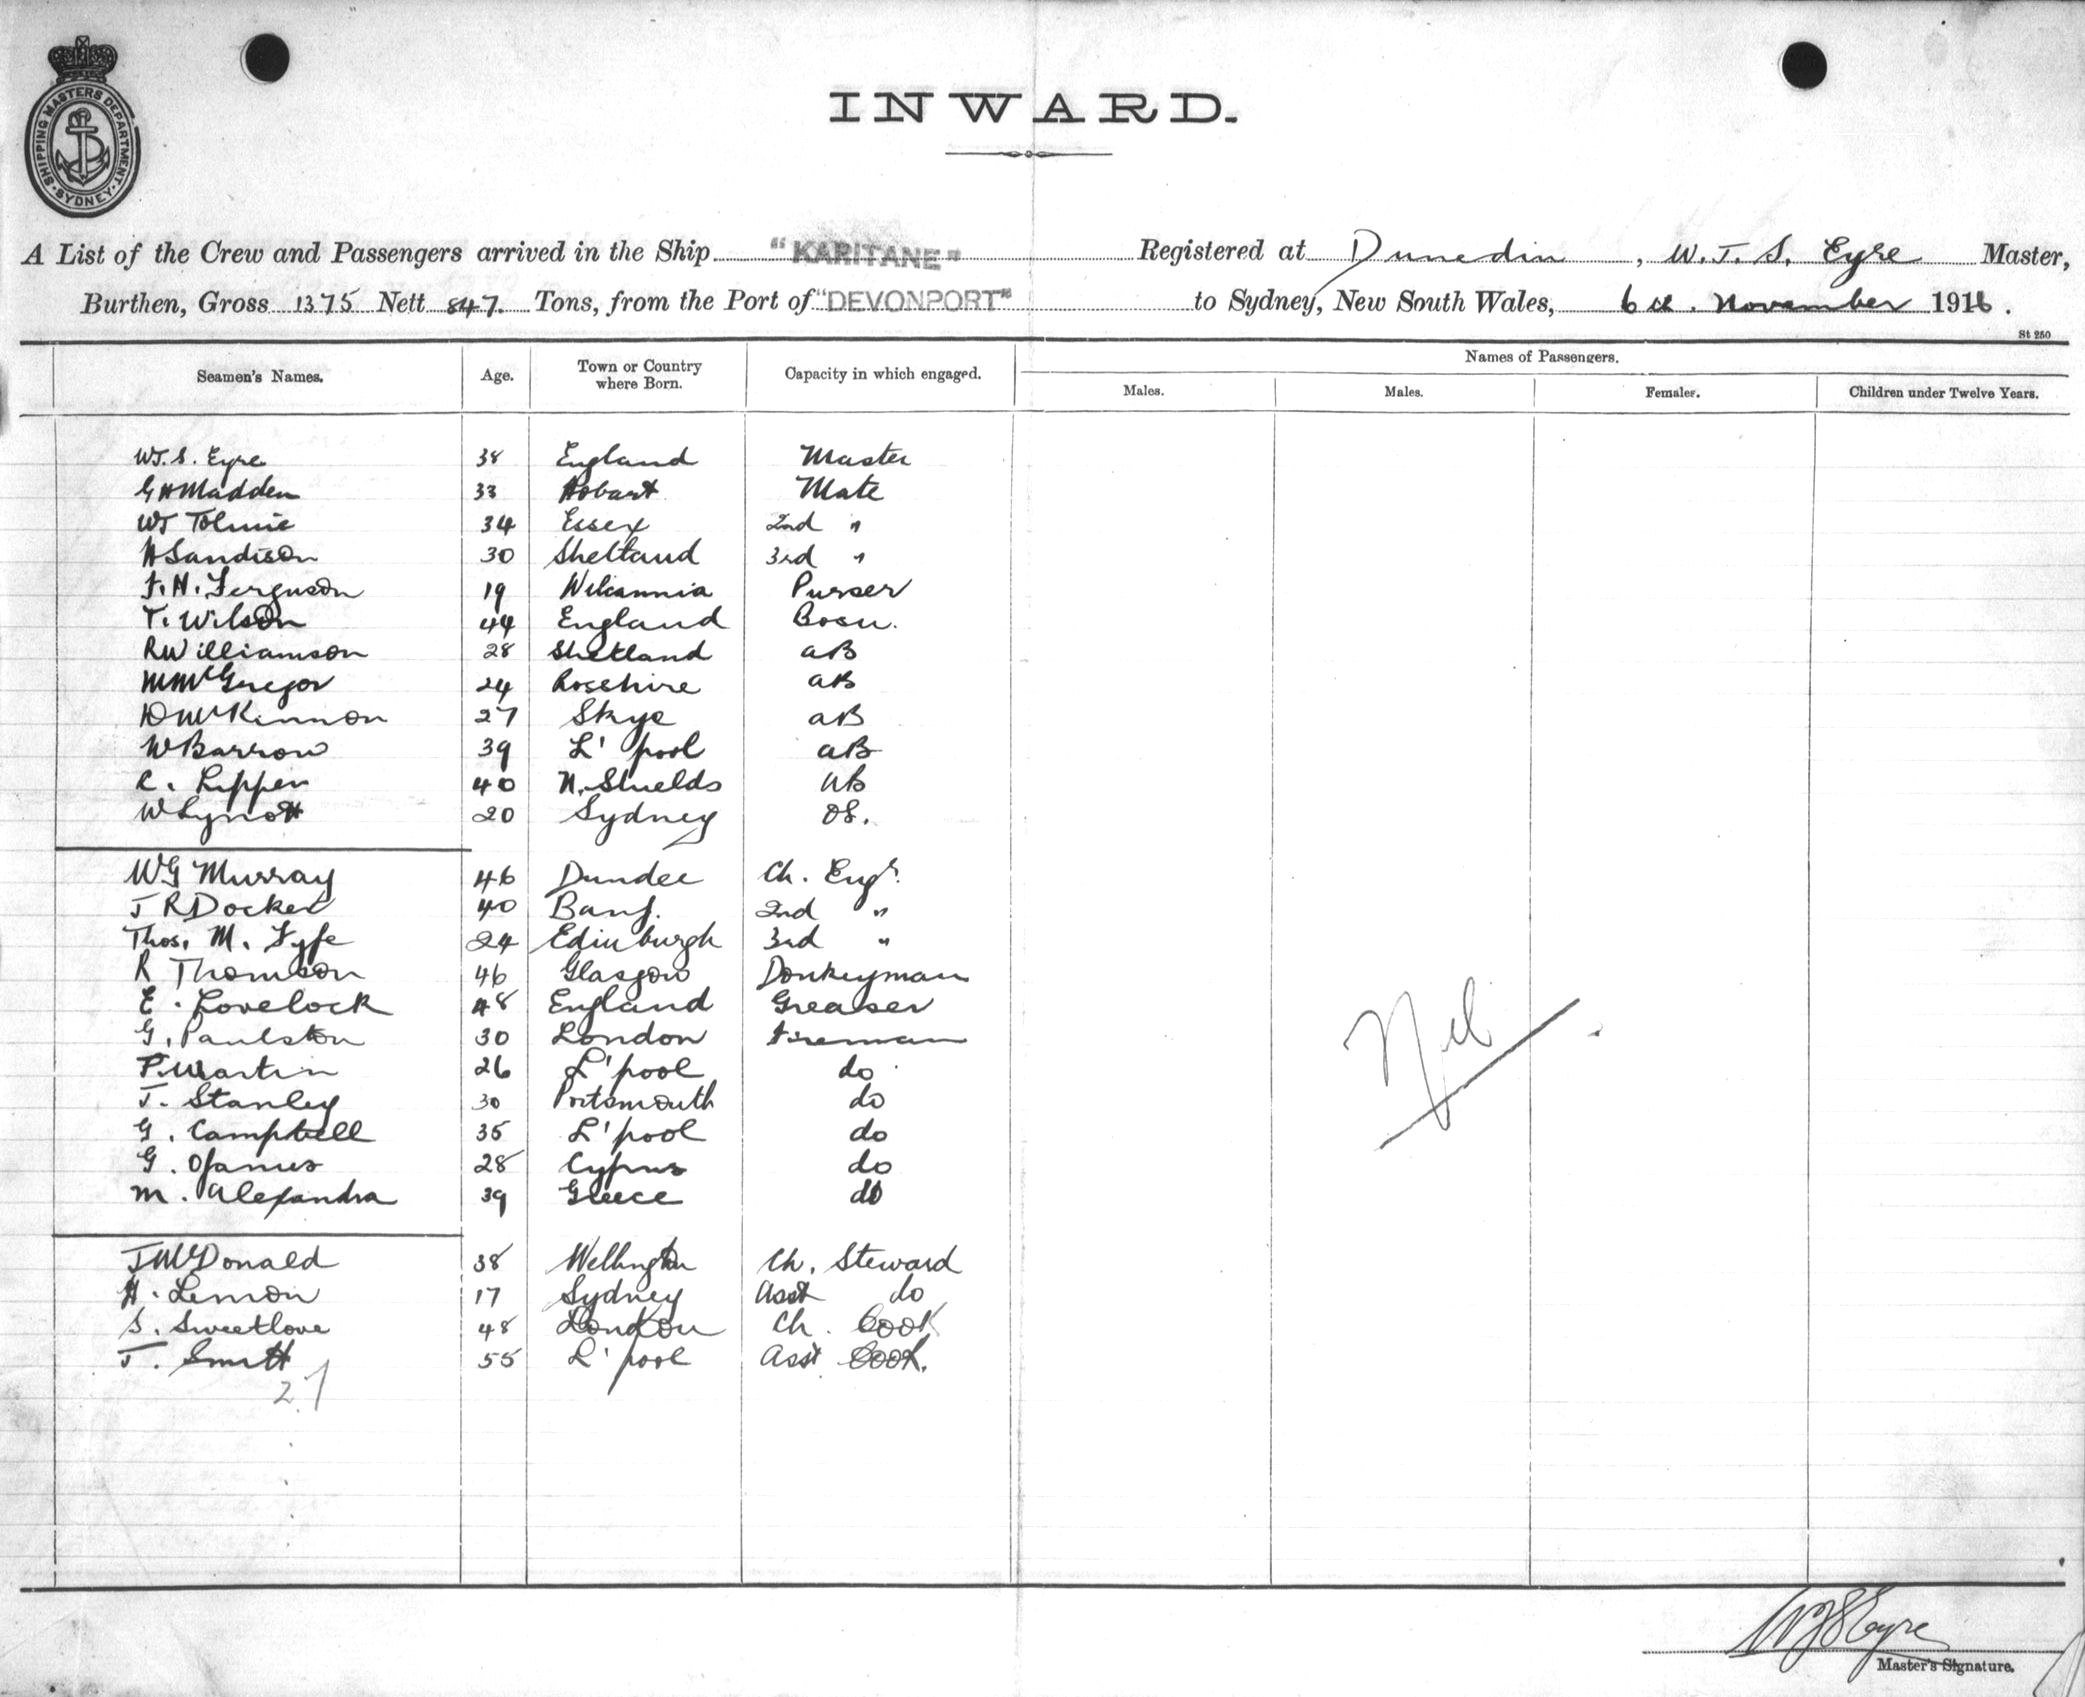 SHIPPING MASTERS DEPARTMENT. SYDNEY
INWARD.
A List of the Crew and Passengers arrived in the Ship "KARITANE" Registered at Dunedin, W.J.S. Eyre Master,
Burthen, Gross 1375 Nett 847. Tons, from the Port of "DEVONPORT" to Sydney, New South Wales, 6th. November 1916.
St 250
Seamen's Names. Age. Town or Country where Born. Capacity in which engaged. Names of Passengers.
Males. Males. Females. Children under Twelve Years.
W.J.S. Eyre 38 England Master
G H Madden 33 Hobart Mate
WJ Tolmie 34 Essex 2nd "
Sandison 30 Shetland 3rd "
F.H. Ferguson 19 Wilcannia Purser
T. Wilson 44 England Bosn.
R Williamson 28 Shetland AB
M McGregor 24 Rosshire AB
D McKinnon 27 Skye AB
W Barrow 39 L'pool AB
40 N. Shields AB
W Lynott 20 Sydney OS.
WG Murray 46 Dundee Ch. Engr.
J R Docker 40 Banf. 2nd "
Thos. M. Fyfe 24 Edinburgh 3rd "
R Thomson 46 Glasgow Donkeyman
E. Lovelock 48 England Greaser
G. Paulston 30 London Fireman
P. Martin 26 L'pool do
J. Stanley 30 Portsmouth do
G. Campbell 35 L'pool do
G. 28 Cyprus do
M. Alexandra 39 Greece do
J McDonald 38 Wellington Ch. Steward
H. Lemon 17 Sydney Asst do
S. Sweetlove 48 London Ch. Cook
J. Smith 55 L'pool Asst Cook.
27
Nil
WJS Eyre
Master's Signature.